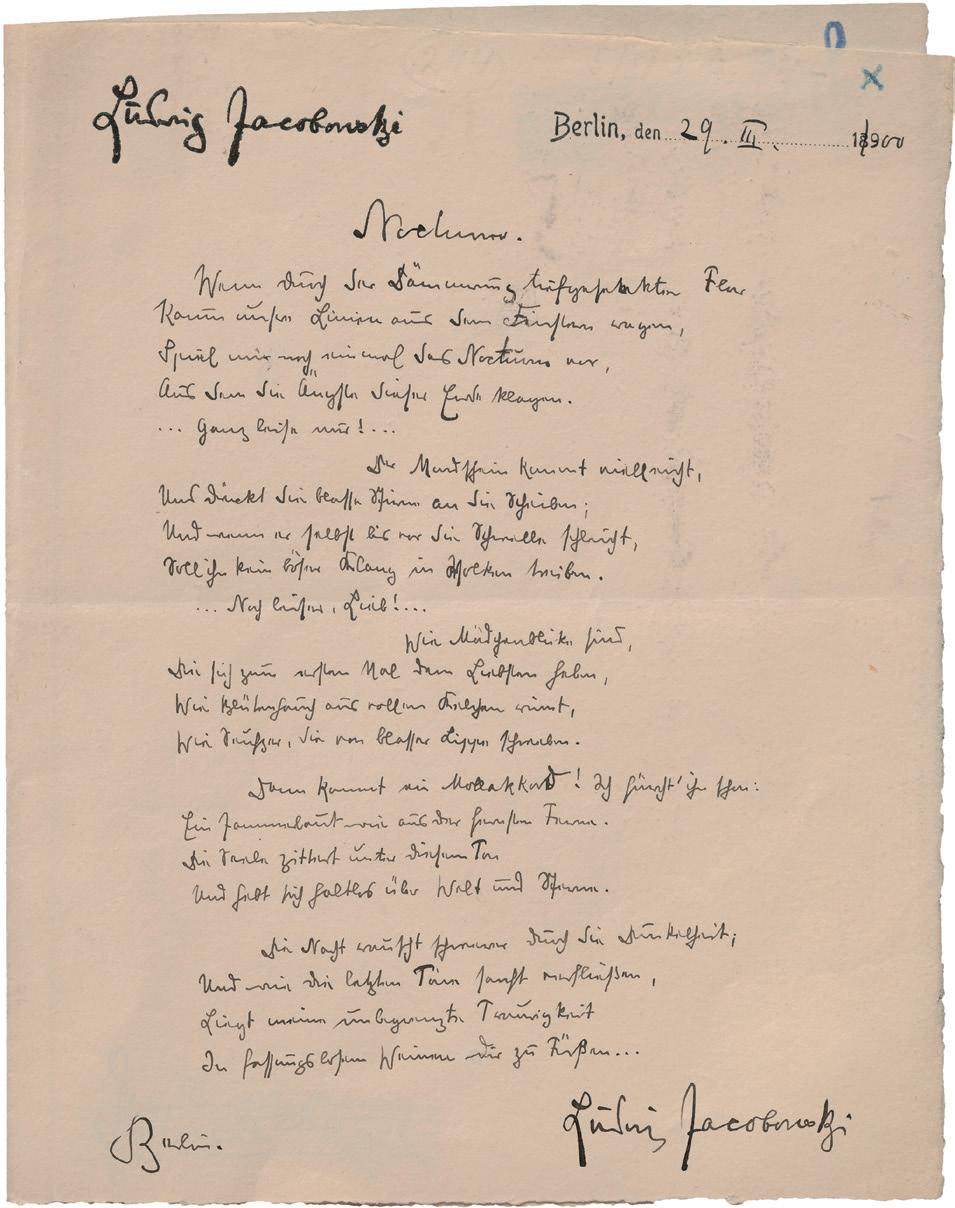 Ludwig Jacobowski
Berlin, den 29. III. 1900
Nocturno.
Wenn durch der Dämmerung tiefgesenkten Flor
Kaum unsre Linien aus dem Finstern ragen,
Spiel mir noch einmal das Nocturno vor,
Aus dem die Ängste dieser Erde klagen.
... Ganz leise nur!...
Der Mondschein kommt vielleicht,
Und drückt die blasse Stirne an die Scheiben;
Und wenn er selbst bis vor die Schwelle schleicht,
Soll ihn kein böser Klang in Wolken treiben.
... Noch leiser, Lieb!...
Wie Mädchenblicke sind,
Die sich zum ersten Mal dem Liebsten heben,
Wie Blütenhauch aus vollen Kelchen rinnt,
Wie Seufzer, die von blasser Lippe schweben.
Dann kommt ein Mollakkord! Ich fürcht' ihn schon:
Ein Jammerlaut wie aus der fernsten Ferne.
Die Seele zittert unter diesem Ton
Und hebt sich haltlos über Welt und Sterne.
Die Nacht rauscht schwerer durch die Dunkelheit;
Und wie die letzten Töne sacht verfließen,
Liegt meine unbegrenzte Traurigkeit
In fassungslosem Weinen dir zu Füßen...
Ludwig Jacobowski
Berlin.